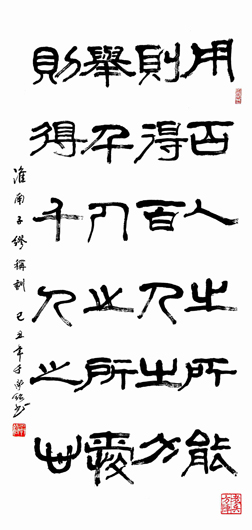 用百人之所能
則得百人之力
舉千人之所愛
則得千人之心
淮南子繆稱訓 己丑年